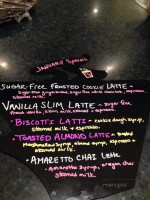 January Specials
Sugar-Free Frosted Cookie Latte -
Sugar free gingerbread, sugar free white chocolate, espresso,
steamed milk.
Vanilla Slim Latte - Sugar free
french vanilla, skim milk, steamed + espresso.
Biscotti Latte - cookie dough syrup,
steamed milk + espresso.
Toasted Almond Latte - Toasted
Marshmallow syrup, almond syrup, espresso +
steamed milk.
Amaretto Chai Latte
- Amaretto syrup, oregon chai
steamed milk.